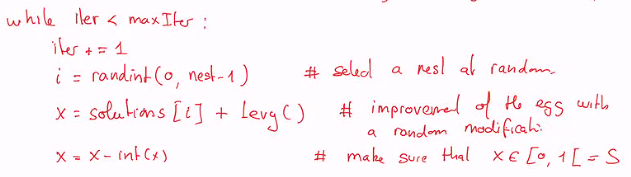 while iter < maxIter :
iter += 1
i = randint(0, nest-1) # select a nest at random
x = solutions[i] + Levy() # improvement of the egg with
a random modificati.
x = x - int(x) # make sure that x ∈ [0, 1[ = S